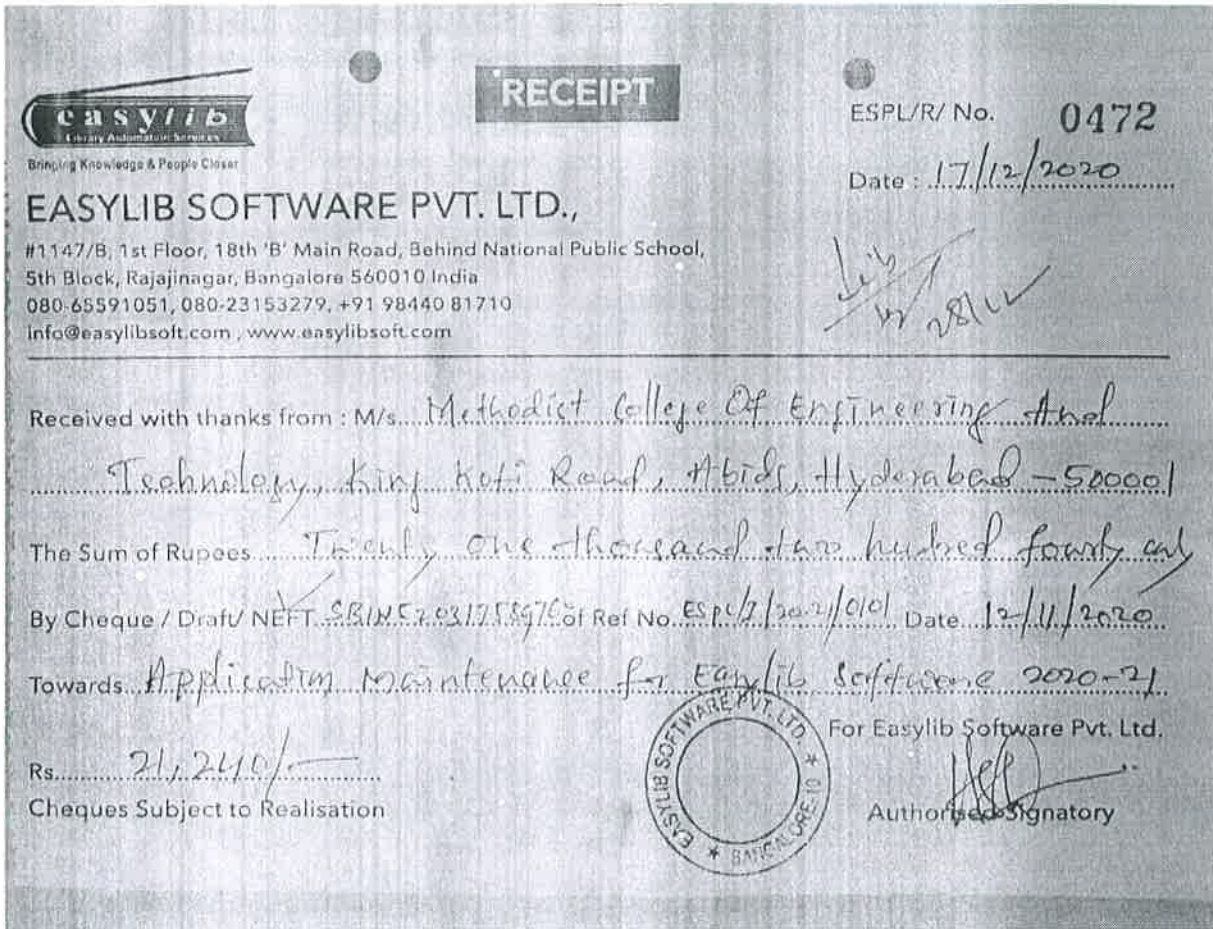 RECEIPT
easylib
Library Automation Services
Bringing Knowledge & People Closer
ESPL/R/ No. 0472
Date : 17/12/2020
EASYLIB SOFTWARE PVT. LTD.,
#1147/B, 1st Floor, 18th 'B' Main Road, Behind National Public School,
5th Block, Rajajinagar, Bangalore 560010 India
080-65591051, 080-23153279, +91 98440 81710
info@easylibsoft.com , www.easylibsoft.com
Lib
28/12
Received with thanks from : M/s. Methodist College Of Engineering And
Technology, King Koti Road, Abids, Hyderabad - 500001
The Sum of Rupees Twenty one thousand two hudred fourty only
By Cheque / Draft/ NEFT of Ref No. ESPL/I/20-21/0101 Date 12/11/2020
Towards Application Maintenance for Easylib Software 2020-21
For Easylib Software Pvt. Ltd.
Rs. 21,240/-
Cheques Subject to Realisation
Authorised Signatory
EASYLIB SOFTWARE PVT. LTD. * BANGALORE-10 *